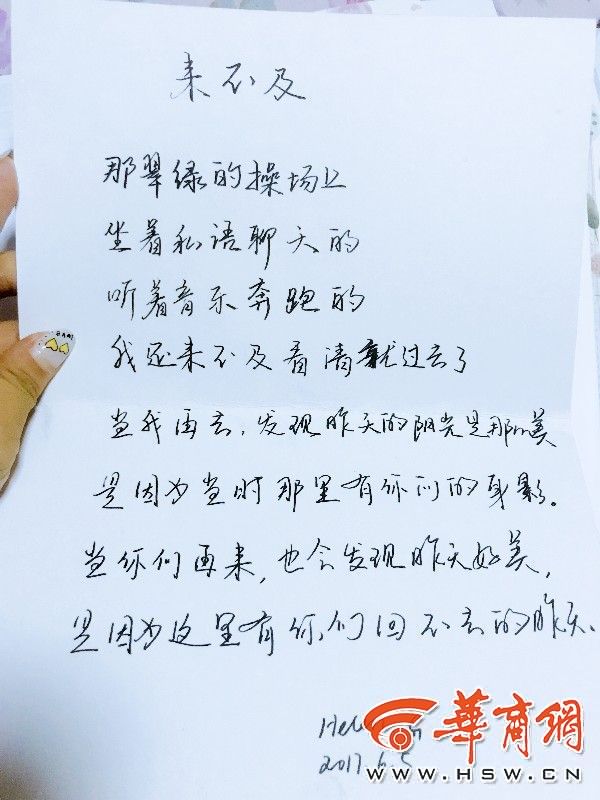 来不及
那翠绿的操场上
坐着私语聊天的
听着音乐奔跑的
我还来不及看清就过去了
当我再去，发现昨天的阳光是那么美
是因为当时那里有你们的身影。
当你们再来，也会发现昨天好美，
是因为这里有你们回不去的昨天。
2017.6.5
華商網
WWW.HSW.CN